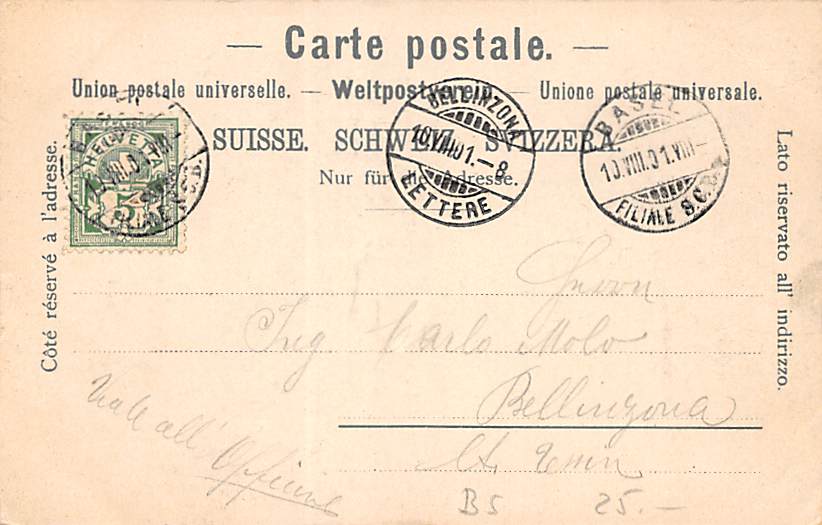 — Carte postale. —
Union postale universelle. — Weltpostverein — Unione postale universale.
SUISSE. SCHWEIZ. SVIZZERA.
Nur für die Adresse.
Côté réservé à l'adresse.
Lato riservato all' indirizzo.
HELVETIA
5
FILIALE S.C.B.
BELLINZONA
10.VIII.01.–8
LETTERE
BASEL
10.VIII.01.VIII–
FILIALE S.C.B.
Herrn
Ing Carlo Molo
Bellinzona
Ct. Tessin
Viale all'
Officina
BS 25.–